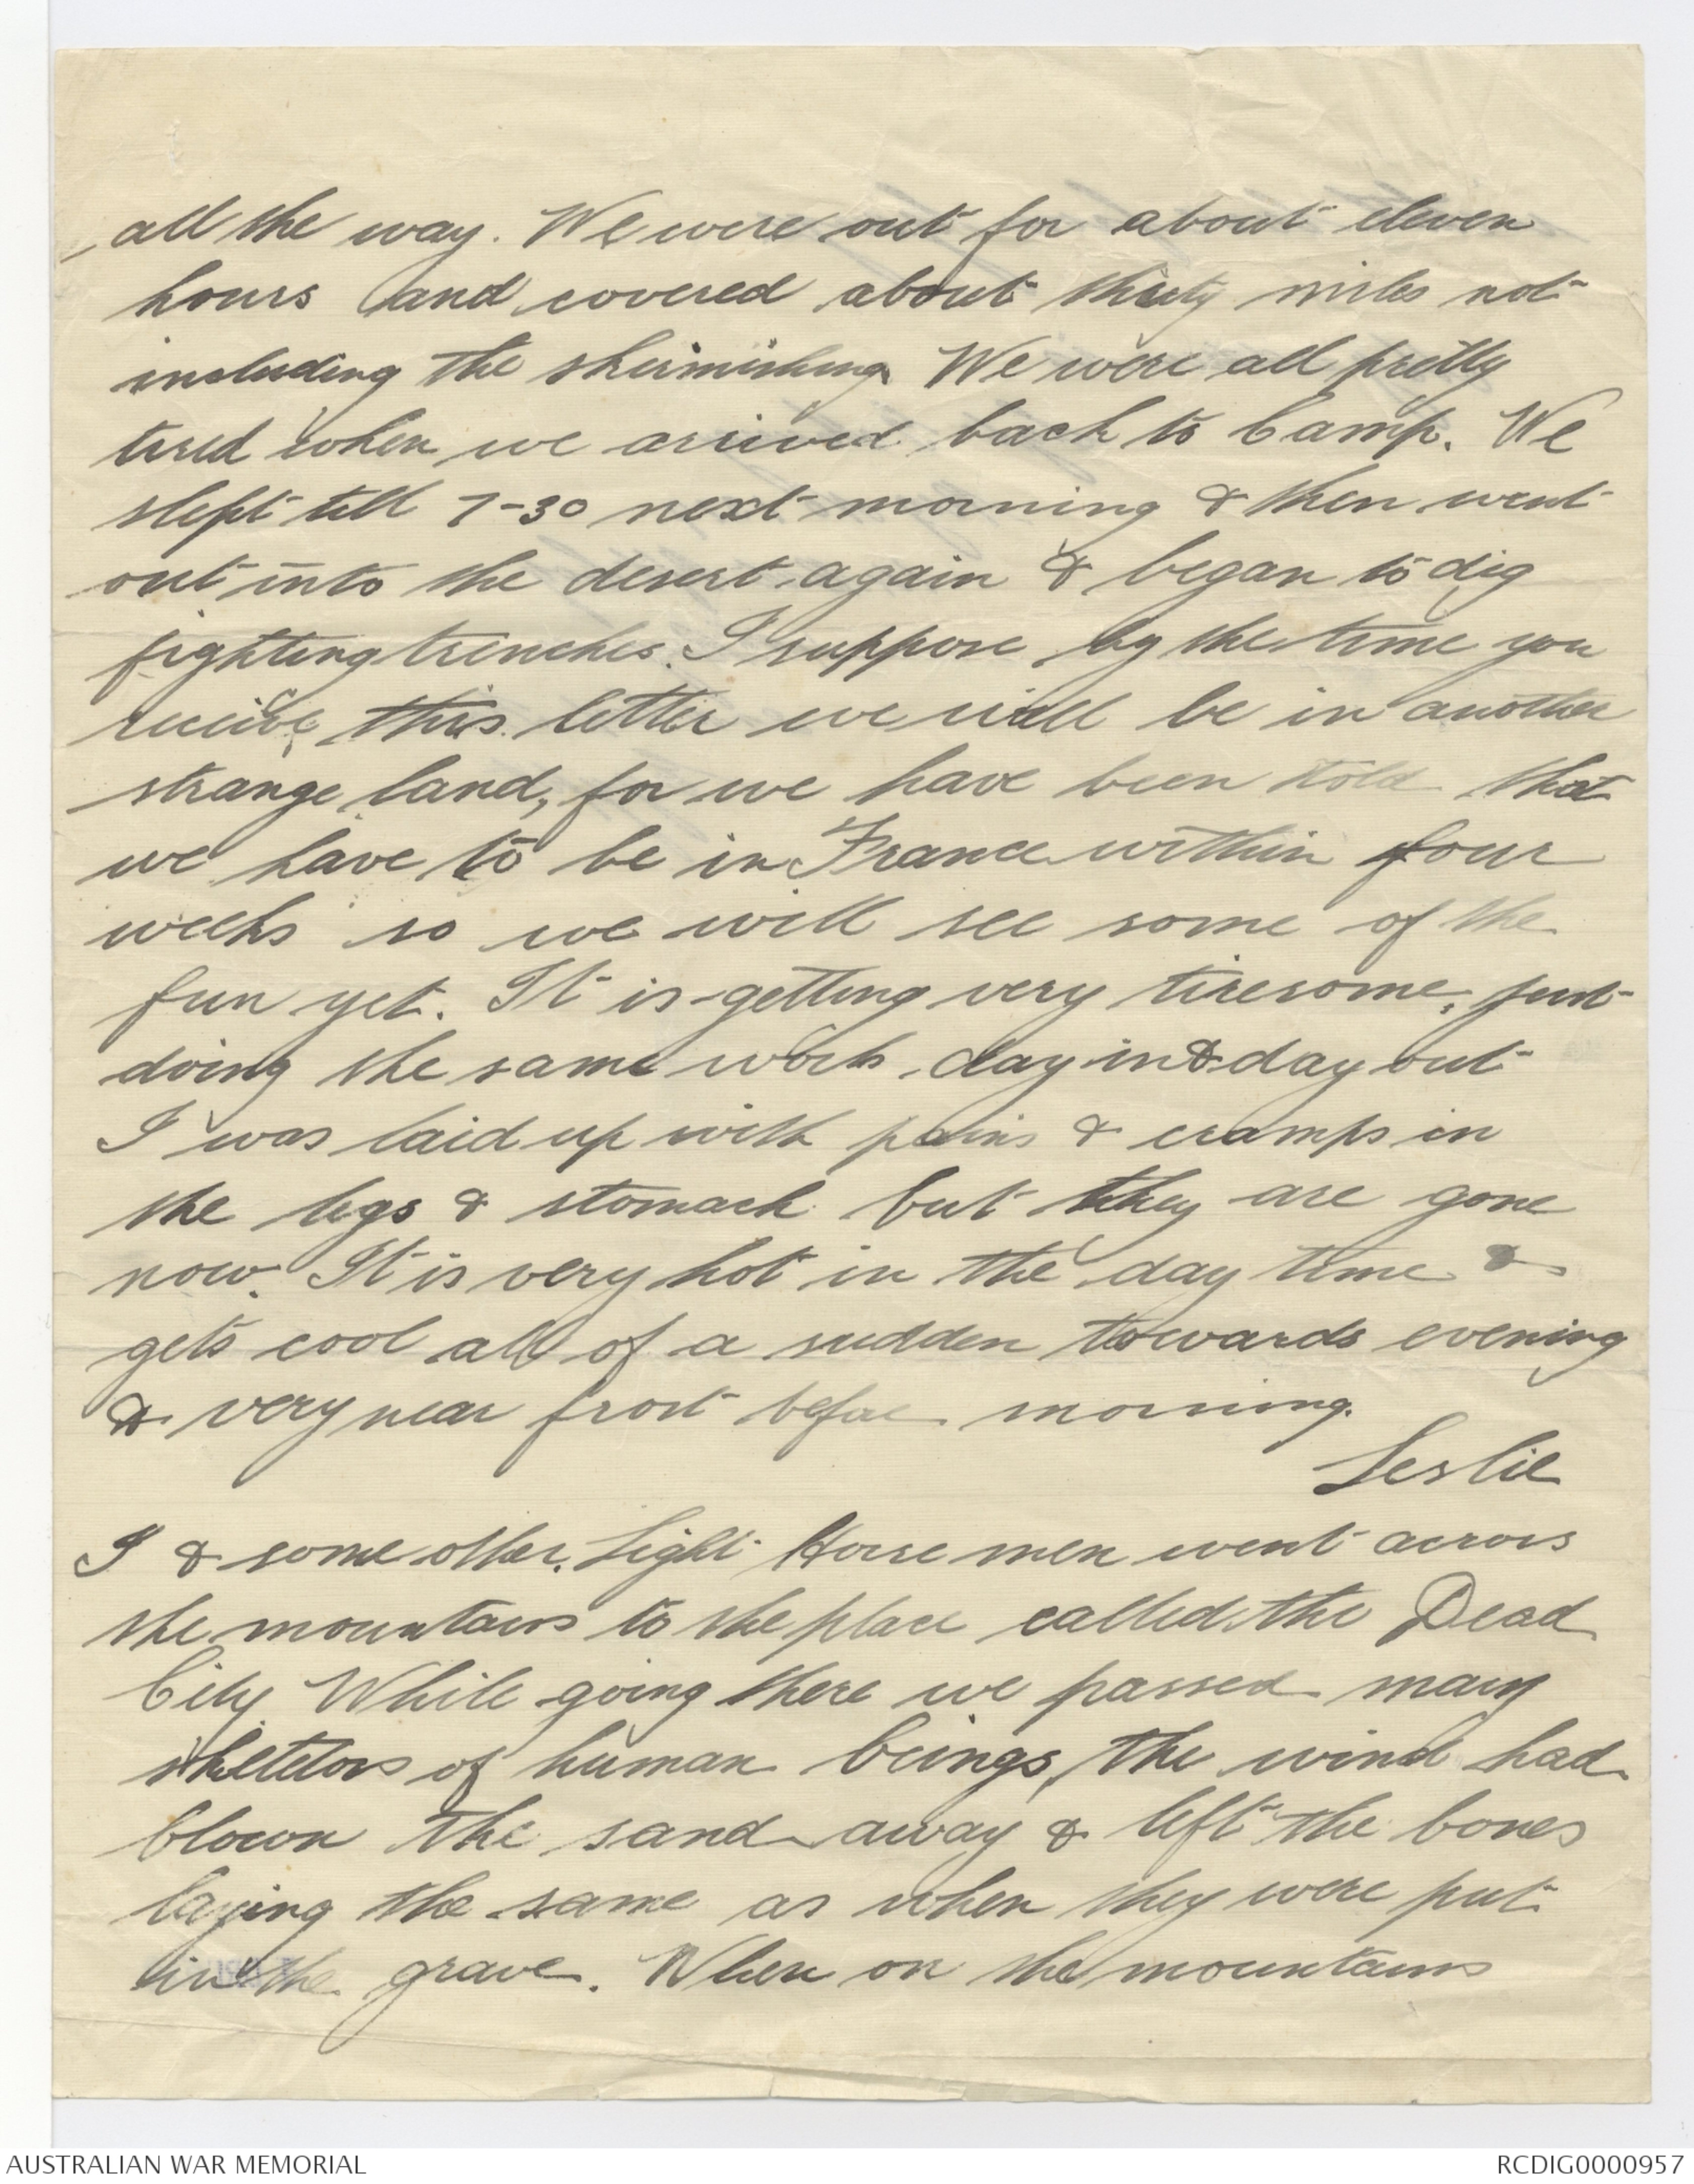 all the way. We were out for about eleven
hours and covered about thirty miles not
including the skirmishing. We were all pretty
tired when we arrived back to Camp. We
slept till 7-30 next morning & then went
out into the desert again & began to dig
fighting trenches. I suppose by the time you
receive this letter we will be in another
strange land, for we have been told that
we have to be in France within four
weeks so we will see some of the
fun yet. It is getting very tiresome, just
doing the same work day in & day out
I was laid up with pains & cramps in
the legs & stomach but they are gone
now. It is very hot in the day time &
gets cool all of a sudden towards evening
& very near frost before morning.
Leslie
I & some other Light Horse men went across
the mountains to the place called the Dead
City. While going there we passed many
skeletons of human beings, the wind had
blown the sand away & left the bones
laying the same as when they were put
in the grave. When on the mountains
AUSTRALIAN WAR MEMORIAL
RCDIG0000957